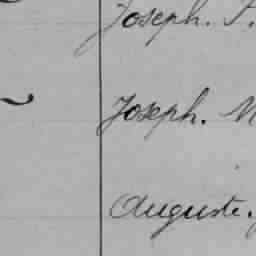 Joseph. S.
Joseph. M
Auguste.